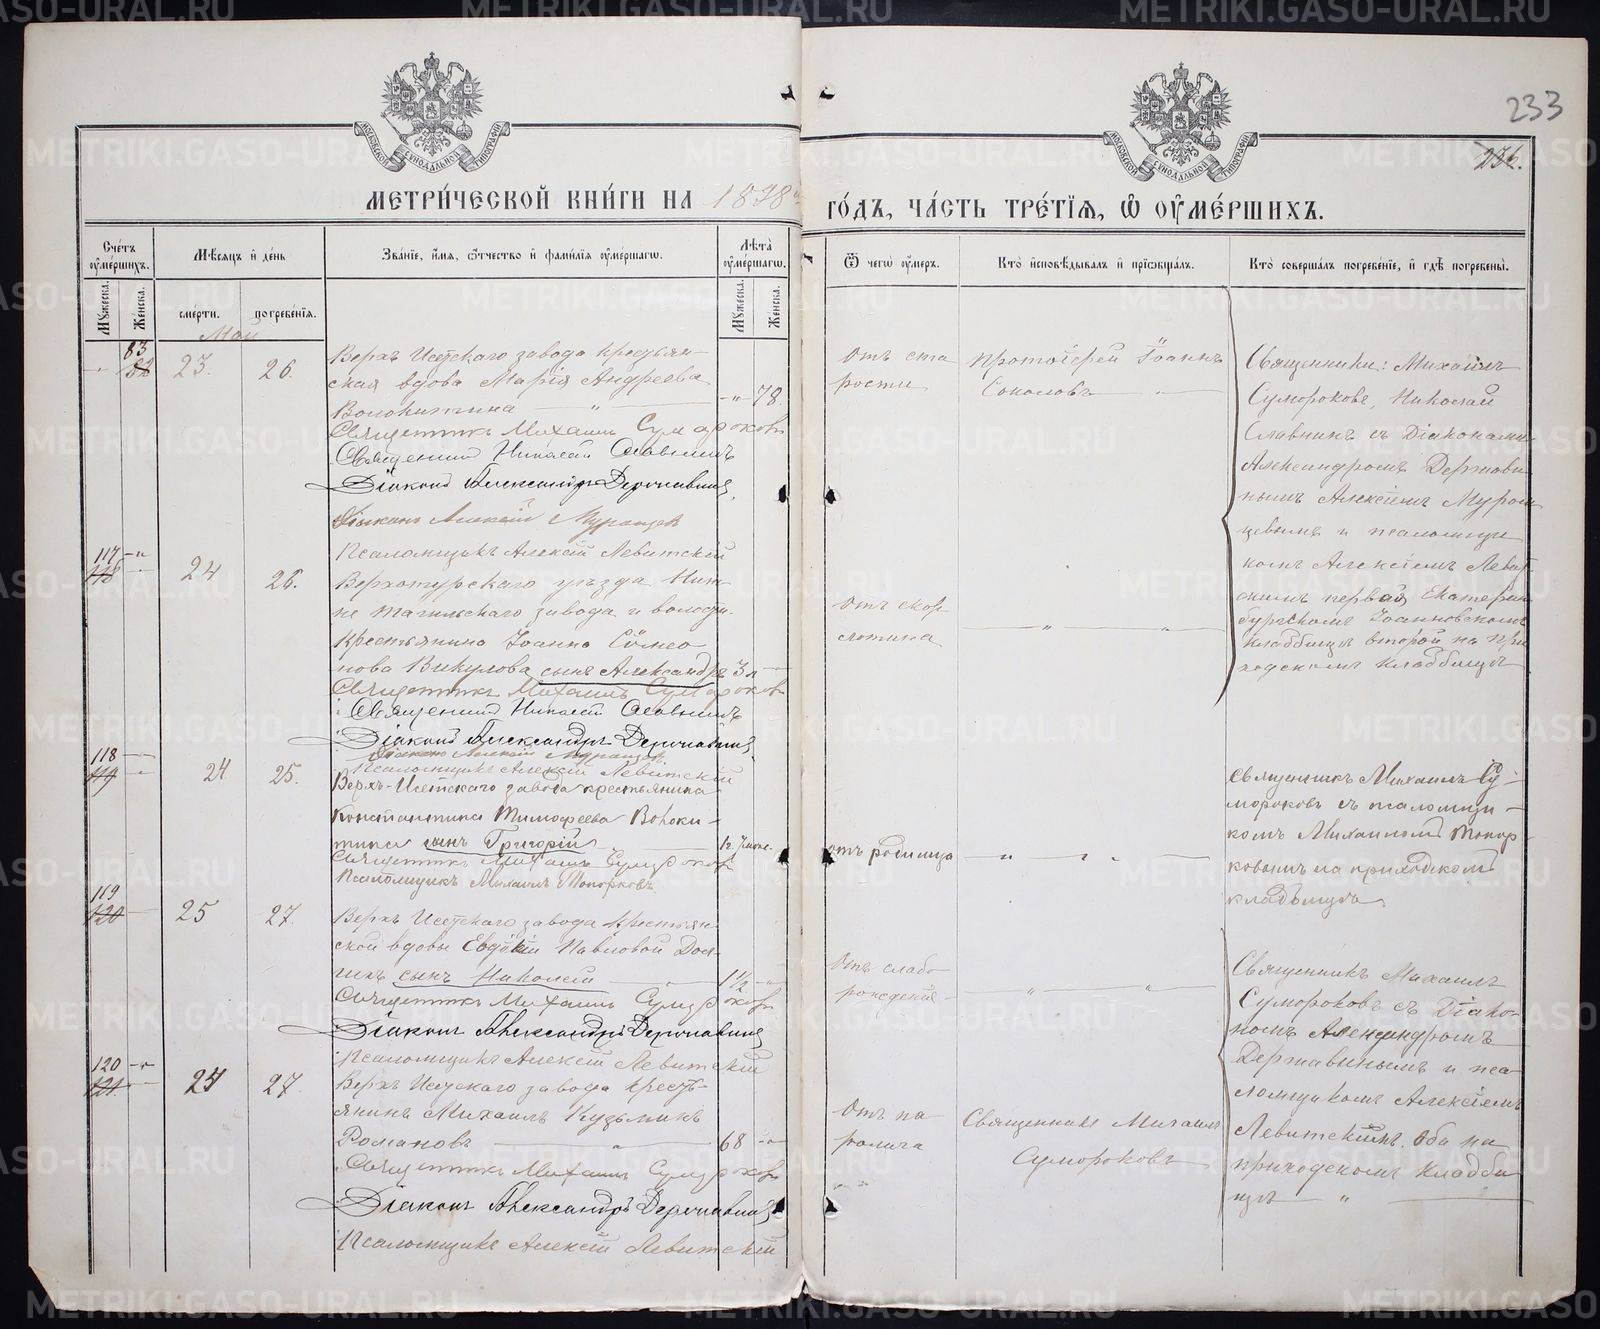 233
236.
МОСКОВСКОЙ СѴНОДАЛЬНОЙ ТИПОГРАФІИ
МОСКОВСКОЙ СѴНОДАЛЬНОЙ ТИПОГРАФІИ
МЕТРИ́ЧЕСКОЙ КНИ́ГИ НА 1898й
ГО́ДЪ, ЧА́СТЬ ТРЕ́ТІѦ, Ѡ ОУМЕ́РШИХЪ.
Сче́тъ оуме́ршихъ.
Мѣ́сѧцъ и де́нь
Зва́нїе, и́мѧ, ѻ́тчество и фами́лїѧ оуме́ршагѡ.
Лѣ́та оуме́ршагѡ.
Мꙋ́жеска.
Же́нска.
сме́рти.
погребе́нїѧ.
Мꙋ́жеска.
Же́нска.
Ѿ чегѡ̀ оу́меръ.
Кто̀ исповѣ́дывалъ и прїѡбща́лъ.
Кто̀ соверша́лъ погребе́нїе, и гдѣ̀ погребены̀.
Май
83
82
23.
26.
Верхъ Исетскаго завода крестьян-
ская вдова Марія Андреева
Волокитина
78.
Священникъ Михаилъ Сумароковъ
Священникъ Николай Славнинъ
Діаконъ Александръ Державинъ
Діаконъ Алексій Муромцевъ
Псаломщикъ Алексій Левитскій
отъ ста
рости
Протоіерей Іоаннъ
Соколовъ
Священники: Михаилъ
Суморокове, Николай
Славнинъ съ Діаконами
Александромъ Держави
нымъ Алексіемъ Муром
цевымъ и псаломщи
комъ Алексіемъ Левит
скимъ первая Екатерин
бургскомъ Іоанновскомъ
кладбищѣ второй на при
ходскомъ кладбищѣ
117
118
24
26.
Верхотурскаго уѣзда Ниж
не Тагильскаго завода и волости
крестьянина Іоанна Сѵмео
нова Викулова сынъ Александръ
3 л
Священникъ Михаилъ Сумароковъ
Священникъ Николай Славнинъ
Діаконъ Александръ Державинъ
Діаконъ Алексій Муромцевъ
Псаломщикъ Алексій Левитскій
отъ скар-
латина
118
119
24
25.
Верхъ-Исетскаго завода крестьянина
Константина Тимофеева Волоки-
тина сынъ Григорій
Священникъ Михаилъ Сумароковъ
Псаломщикъ Михаилъ Топорковъ
отъ родимца
Священникъ Михаилъ Су-
мороковъ съ псаломщи-
комъ Михаиломъ Топор-
ковымъ на приходскомъ
кладбищѣ
119
120
25
27.
Верхъ Исетскаго завода крестьян
ской вдовы Евдокіи Павловой
сынъ Николай
1½
Священникъ Михаилъ Сумароковъ
Діаконъ Александръ Державинъ
Псаломщикъ Алексій Левитскій
Отъ слабо
рожденія
Священникъ Михаилъ
Суморокъвъ съ Діако-
номъ Александромъ
Державинымъ и пса-
ломщикомъ Алексіемъ
Левитскимъ. Оба на
приходскомъ кладби
щѣ
120
121
27.
Верхъ Исетскаго завода кресть-
янинъ Михаилъ Кузьминъ
Романовъ
68
Священникъ Михаилъ Сумароковъ
Діаконъ Александръ Державинъ
Псаломщикъ Алексій Левитскій
Отъ па-
ралича
Священникъ Михаилъ
Сумороковъ
METRIKI.GASO-URAL.RU